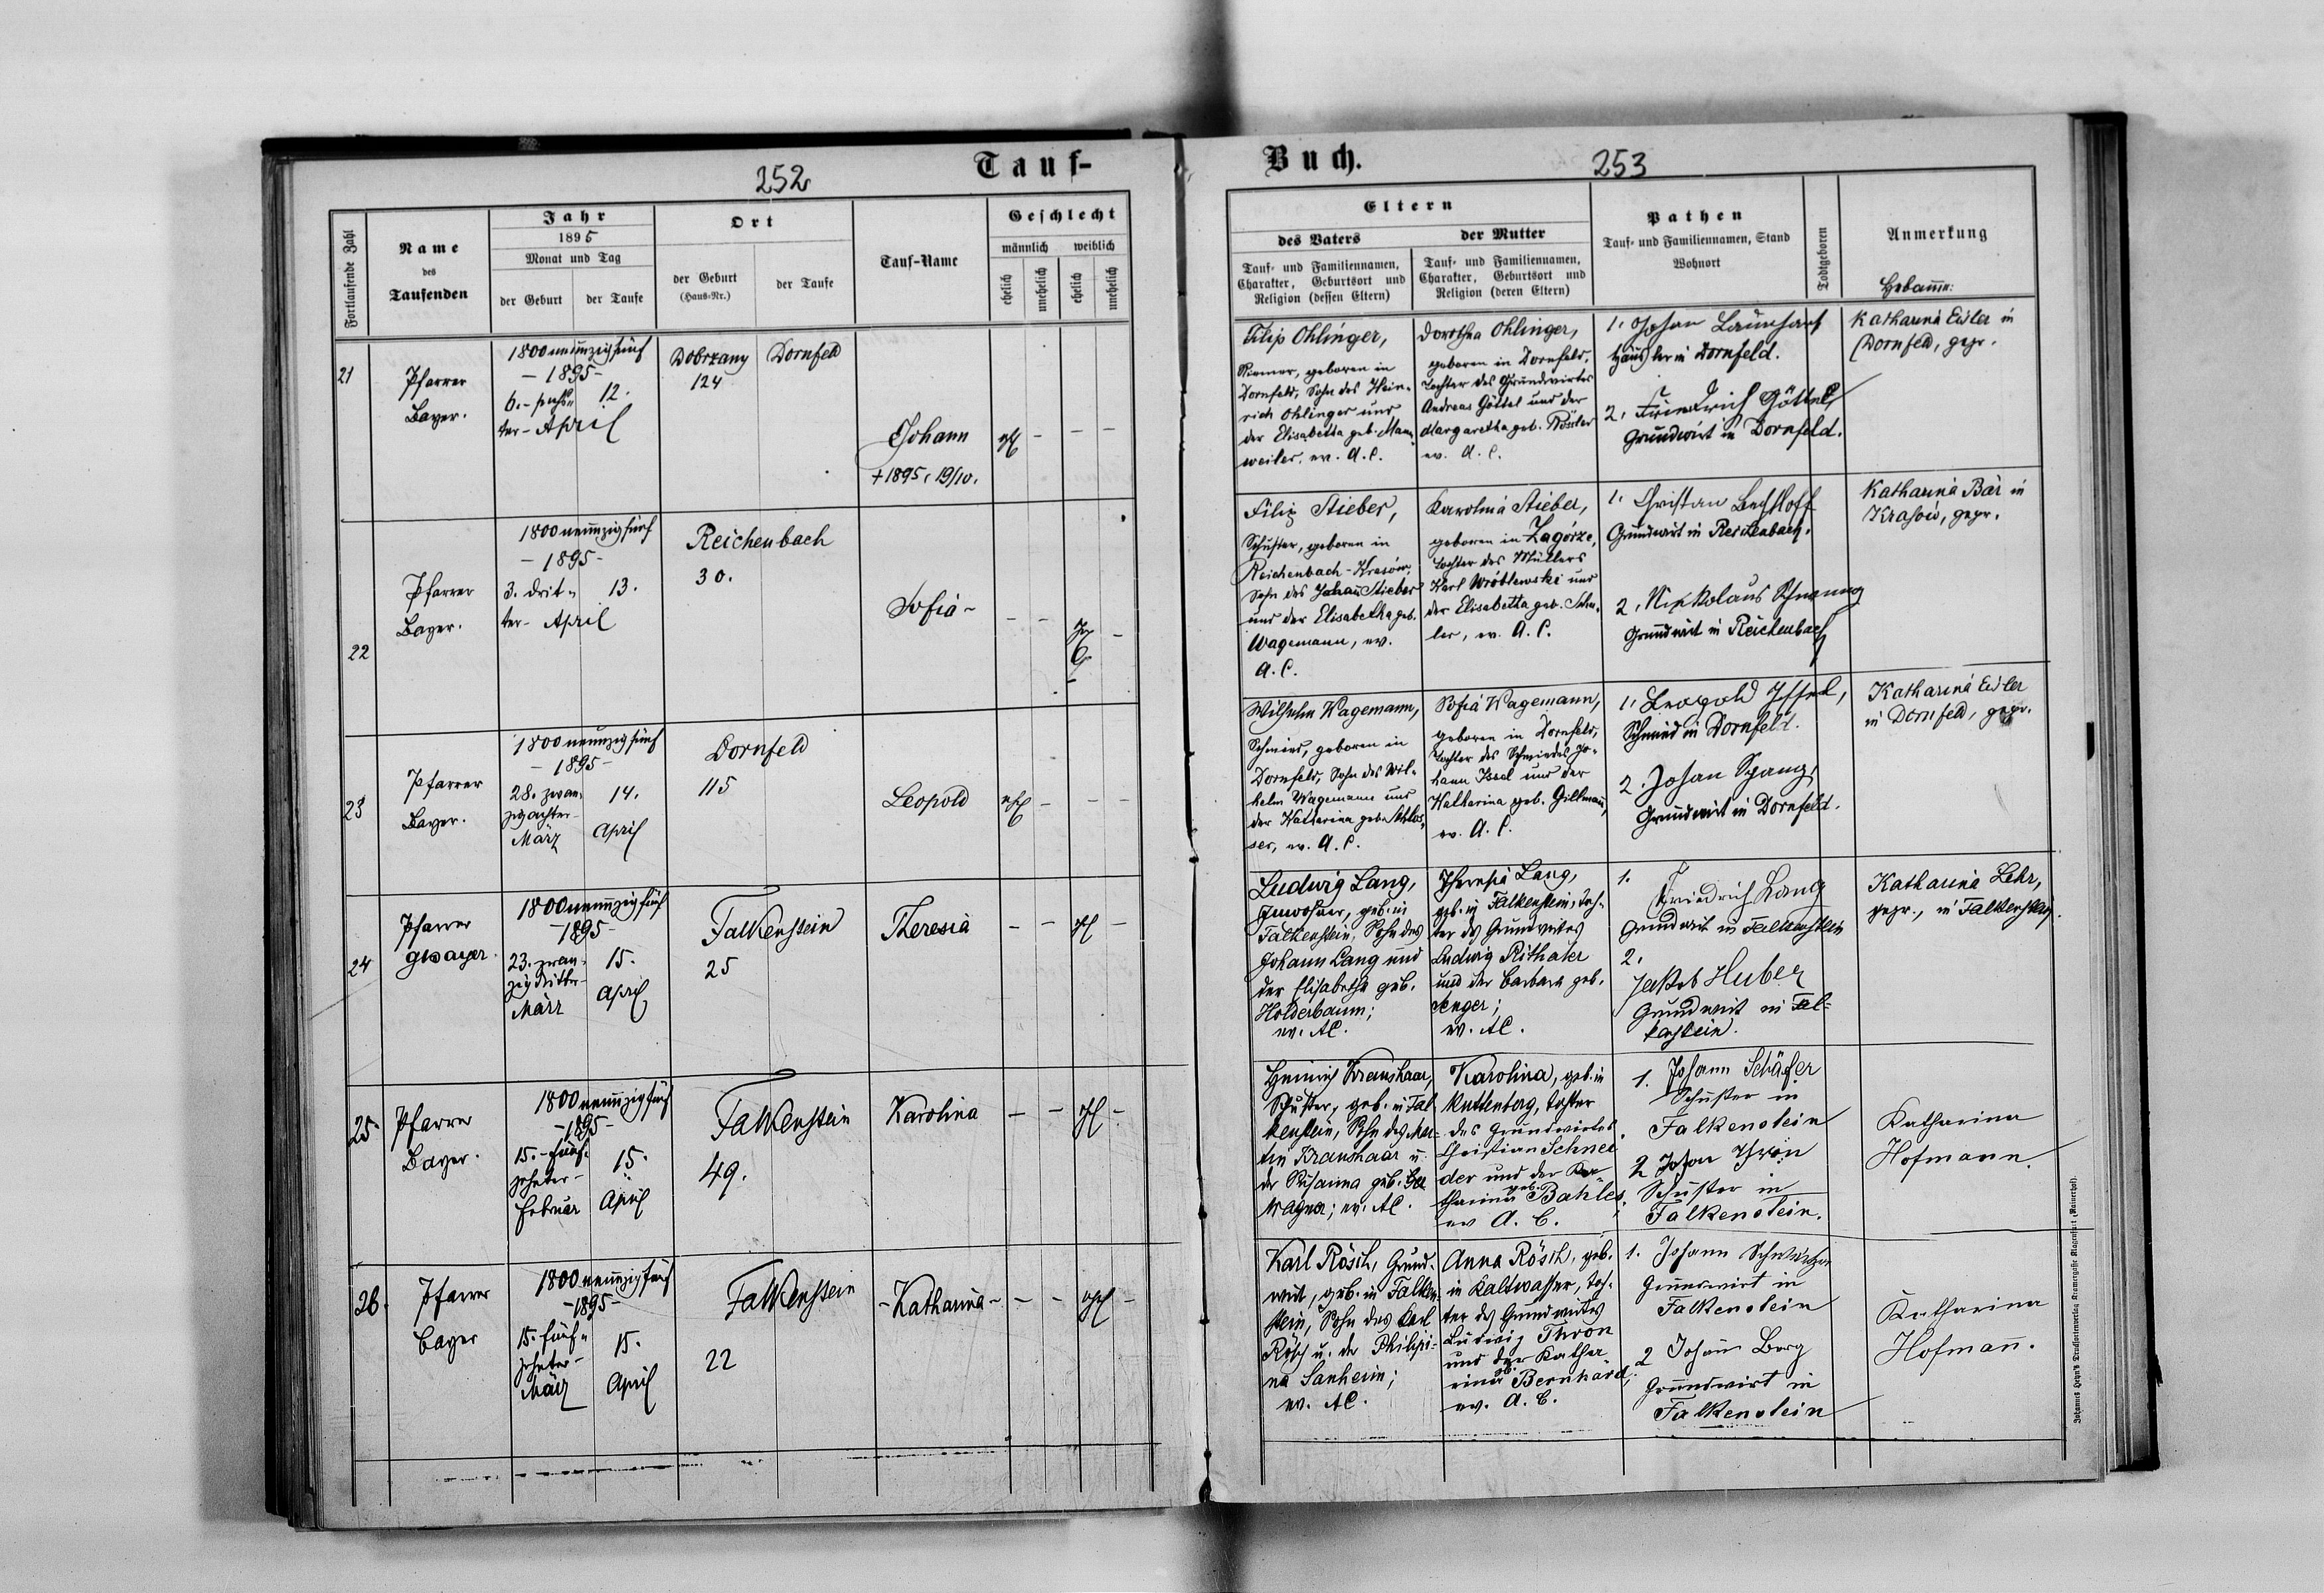 252
Tauf-
Fortlaufende Zahl
Name
des
Taufenden
Jahr
1895
Monat und Tag
der Geburt
der Taufe
Ort
der Geburt
(Haus-Nr.)
der Taufe
Tauf-Name
Geschlecht
männlich
weiblich
ehelich
unehelich
ehelich
unehelich
21
Pfarrer
Bayer.
1800neunzigfünf
- 1895 -
6. - sechs-
ter - April
12.
Dobrzany
124
Dornfeld
Johann
+ 1895, 19/10.
22
Pfarrer
Bayer.
1800neunzigfünf
- 1895 -
3. drit-
ter - April
13.
Reichenbach
30.
Sofia -
23
Pfarrer
Bayer.
1800neunzigfünf
- 1895 -
28. zwan-
zigachter -
März
14.
April
Dornfeld
115
Leopold
24
Pfarrer
Bayer.
1800neunzigfünf
- 1895 -
23. zwan-
zigdritter -
März
15.
April
Falkenstein
25
Theresia
25.
Pfarrer
Bayer.
1800neunzigfünf
- 1895 -
15. - fünf-
zehnter -
Februar
15.
April
Falkenstein
49.
Karolina
26.
Pfarrer
Bayer
1800neunzigfünf
- 1895 -
15. fünf-
zehnter -
März
15.
April
Falkenstein
22
- Katharina -
Buch.
253
Eltern
des Vaters
der Mutter
Tauf- und Familiennamen,
Charakter, Geburtsort und
Religion (dessen Eltern)
Tauf- und Familiennamen,
Charakter, Geburtsort und
Religion (deren Eltern)
Pathen
Tauf- und Familiennamen, Stand
Wohnort
Todtgeboren
Anmerkung
Hebamme:
Filip Ohlinger,
geboren in
Dornfeld, Sohn des Hein-
rich Ohlinger und
der Elisabetha geb. Mann-
weiler, ev. A. C.
Dorothea Ohlinger,
geboren in Dornfeld,
Tochter des Grundwirtes
Andreas Göttel und der
Margaretha geb. Rössler
ev. A. C.
1. Johan
Häusler in Dornfeld.
2. Friedrich Göttel,
Grundwirt in Dornfeld.
Katharina Eisler in
Dornfeld, gepr.
Filip Stieber,
Schuster, geboren in
Reichenbach-Krasów,
Sohn des Johan Stieber
und der Elisabetha geb.
Wagemann, ev.
A. C.
Karolina Stieber,
geboren in Zagórze,
Tochter des Müllers
Karl Wróblewski und
der Elisabetha geb.
ler, ev. A. C.
1. Christian Bechtloff
Grundwirt in Reichenbach.
2. Nikolaus
Grundwirt in Reichenbach
Katharina Bär in
Krasów, gepr.
Wilhelm Wagemann,
Schmied, geboren in
Dornfeld, Sohn des Wil-
helm Wagemann und
der Katharina geb. Schlos-
ser, ev. A. C.
Sofia Wagemann,
geboren in Dornfeld,
Tochter des Schmiedes Jo-
hann Issel und der
Katharina geb. Gillmann,
ev. A. C.
1. Leopold Issel,
Schmied in Dornfeld.
2. Johan Spang,
Grundwirt in Dornfeld.
Katharina Eisler
in Dornfeld, gepr.
Ludwig Lang,
Inwohner, geb. in
Falkenstein, Sohn des
Johann Lang und
der Elisabetha geb.
Holderbaum;
ev. AC.
Theresia Lang,
geb. in Falkenstein, Toch-
ter des Grundwirtes
Ludwig Rithaler
und der Barbara geb.
Senger;
ev. AC.
1.
Friedrich Lang
Grundwirt in Falkenstein
2.
Jakob Huber
Grundwirt in Fal-
kenstein.
Katharina Lehr,
gepr., in Falkenstein.
Heinrich Kraushaar,
Schuster, geb. in Fal-
kenstein, Sohn des Mar-
tin Kraushaar u.
der Susanna geb.
Wagner; ev. AC.
Karolina, geb. in
Kuttenberg, Tochter
des Grundwirtes
Christian Schnei
der und der Ka-
tharina geb. Bahles,
ev A. C.
1. Johann Schäfer
Schuster in
Falkenstein
2 Johan Thron
Schuster in
Falkenstein.
Katharina
Hofmann.
Karl Rösch, Grund-
wirt, geb. in Falken-
stein, Sohn des Karl
Rösch u. der Philipi-
na Sanheim;
ev. AC.
Anna Rösch, geb.
in Kaltwasser, Toch-
ter des Grundwirtes
Ludwig Thron
und der Katha
rina geb. Bernhard;
ev. A. C.
1. Johann
Grundwirt in
Falkenstein
2 Johann Berg
Grundwirt in
Falkenstein
Katharina
Hofmann.